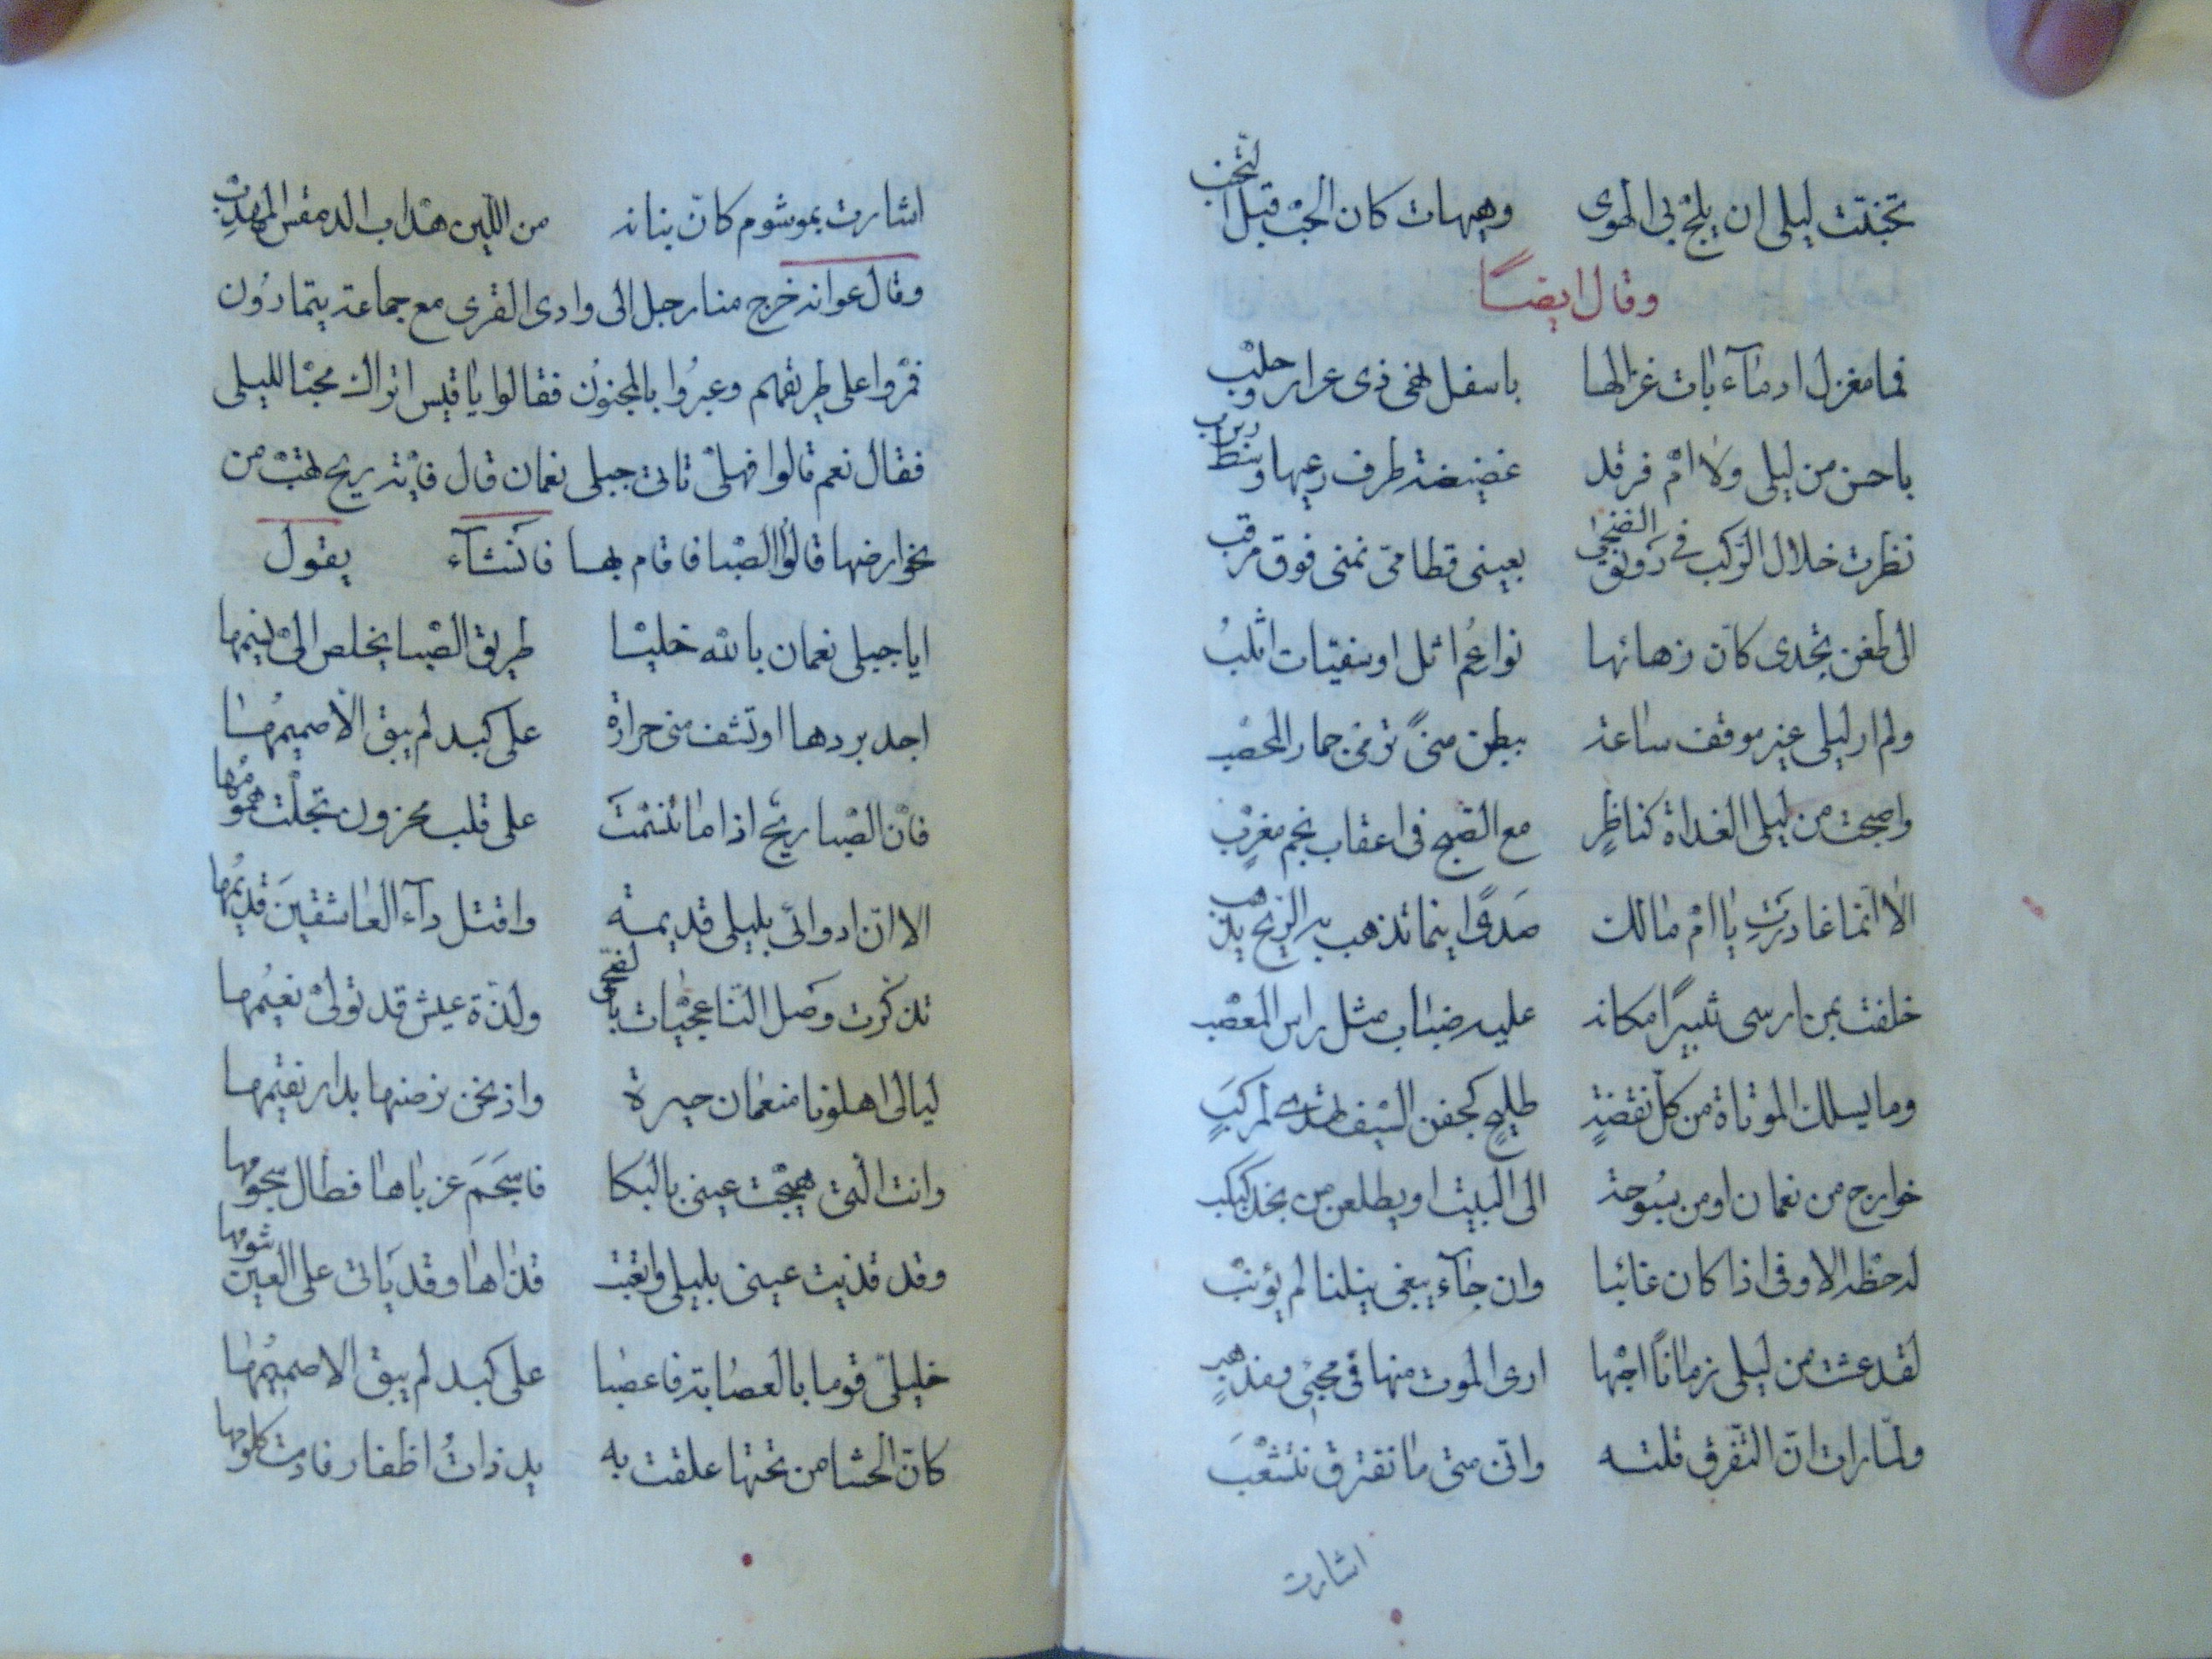 تجنبت ليلى ان يلج بى الهوى وهيهات كان الحب قبل التجنب
وقال ايضا
فما مغزل ادمآء بات غزالها باسفل نهى ذى عرار وحلب
باحسن من ليلى ولا ام فرقد غضيضة طرف رعيها وسط ربرب
نظرت خلال الركب فى رونق الضحى بعينى قطامى نمى فوق مرقب
الى ظعن تحدى كان زهائها نواعم اثل او سعيات اثلب
ولم ار ليلى غير موقف ساعة ببطن منى ترمى جمار المحصب
واصبحت من ليلى الغداة كناظر مع الصبح فى اعقاب نجم مغرب
الا انما غادرت يا ام مالك صدى اينما تذهب به الريح يذهب
حلفت بمن ارسى ثبيرا مكانه عليه ضباب مثل راس المعصب
وما يسلك الموماة من كل نقضة طليح كجفن السيف تهدى لمركب
خوارج من نعمان او من سبوحة الى البيت او يطلعن من نجد كبكب
له حظه الاوفى اذا كان غائبا وان جآء يبغى نيلنا لم يؤنب
لقد عشت من ليلى زمانا احبها ارى الموت منها فى مجيئى ومذهبى
ولما رات ان التفرق فلتة وانى متى ما تفترق نتشعب
اشارت
اشارت بموشوم كان بنانه من اللين هداب الدمقس المهدب
وقال عوانه خرج منا رجل الى وادى القرى مع جماعة يتمارون
فمروا على طريقهم وعبروا بالمجنون فقالوا يا قيس اتراك محبا لليلى
فقال نعم قالوا فهلى تاتى جبلى نعمان قال فاية ريح تهب من
نحو ارضها قالوا الصبا فاقام بها فانشآء يقول
ايا جبلى نعمان بالله خليا طريق الصبا يخلص الى نسيمها
اجد بردها او تشف منى حرارة على كبد لم يبق الا صميمها
فان الصبا ريح اذا ما تنسمت على قلب محزون تجلت همومها
الا ان ادوائى بليلى قديمة واقتل دآء العاشقين قديمها
تذكرت وصل الناعجيات بالحمى ولذة عيش قد تولى نعيمها
ليالى اهلونا منعمان جيرة واذ نحن نرضيها بدار نقيمها
وانت التى هيجت عينى بالبكا فاسجم غرباها فطال سجومها
وقد قذيت عينى بليلى واتعبت قذاها وقد ياتى على العين شومها
خليلى قوما بالعصابة فاعصبا على كبد لم يبق الا صميمها
كان الحشا من تحتها علقت به يد ذات اظفار فادمت كلومها